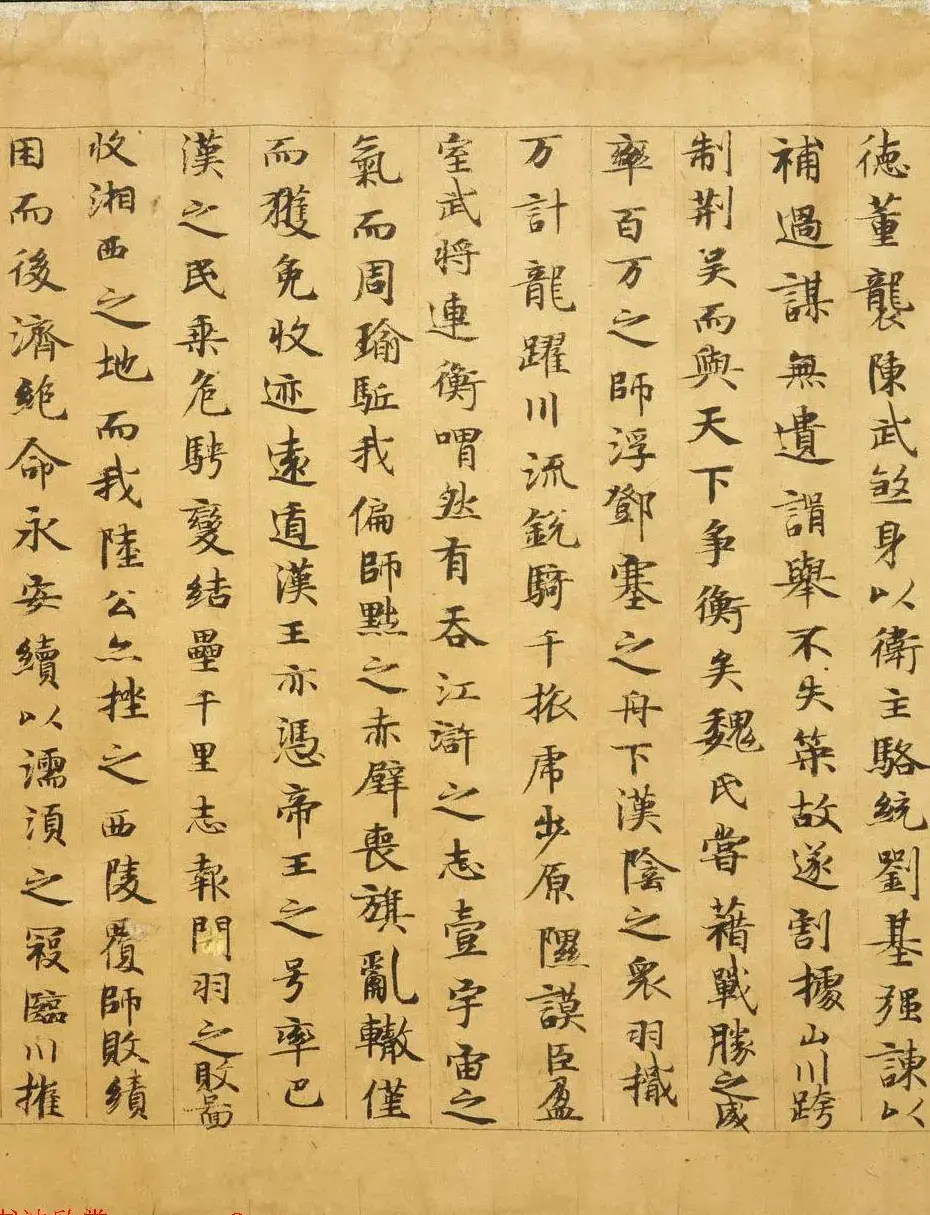 徳董襲陳武煞身以衛主駱統劉基强諫以
補過謀無遺諝舉不失策故遂割據山川跨
制荆吴而與天下争衡矣魏氏嘗藉戰勝之威
率百万之師浮鄧塞之舟下漢陰之衆羽撠
万計龍躍川流銳騎千旅虎步原隰謨臣盈
室武将連衡喟然有吞江滸之志壹宇宙之
氣而周瑜駈我偏師黜之赤壁喪旗亂轍僅
而獲免收迹遠遁漢王亦憑帝王之号率巴
漢之民乗危騁變結壘千里志報関羽之敗圖
收湘西之地而我陸公亦挫之西陵覆師敗績
困而後濟絶命永安續以濡湏之寇臨川摧